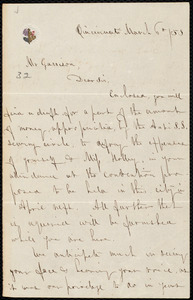 Cincinnati March 6th 1853
Mr Garrison,
Dear Sir,
Enclosed you will
find a draft for a part of the amount
of money appropriated by the Anti S.S.
Sewing Circle, to defray the expenses
of yourself & Miss Holley, in your
attendance at the Convention pro-
posed to be held in this city in
April next. All further the
required will be furnished
while you are here.
We anticipate much in seeing
your face & hearing your voice, as
it was our privilege to do in years